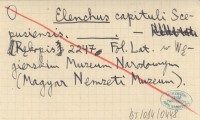 Elenchus capituli Sce-
pusiensis. —
[Rękopis] 2247. Fol. Lat. w Wę-
gierskim Muzeum Narodowym
(Magyar Nemzeti Muzeum).
BJ/084/0448